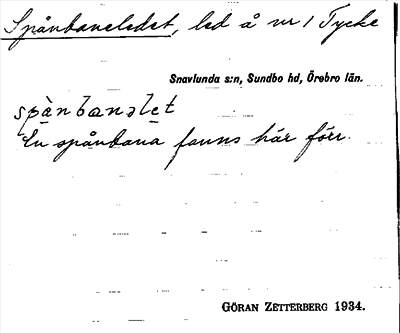 Spånbaneledet, led å nr 1 Tycke
Snavlunda s:n, Sundbo hd, Örebro län.
spànbanəlet
En spånbana fanns här förr.
GÖRAN ZETTERBERG 1934.